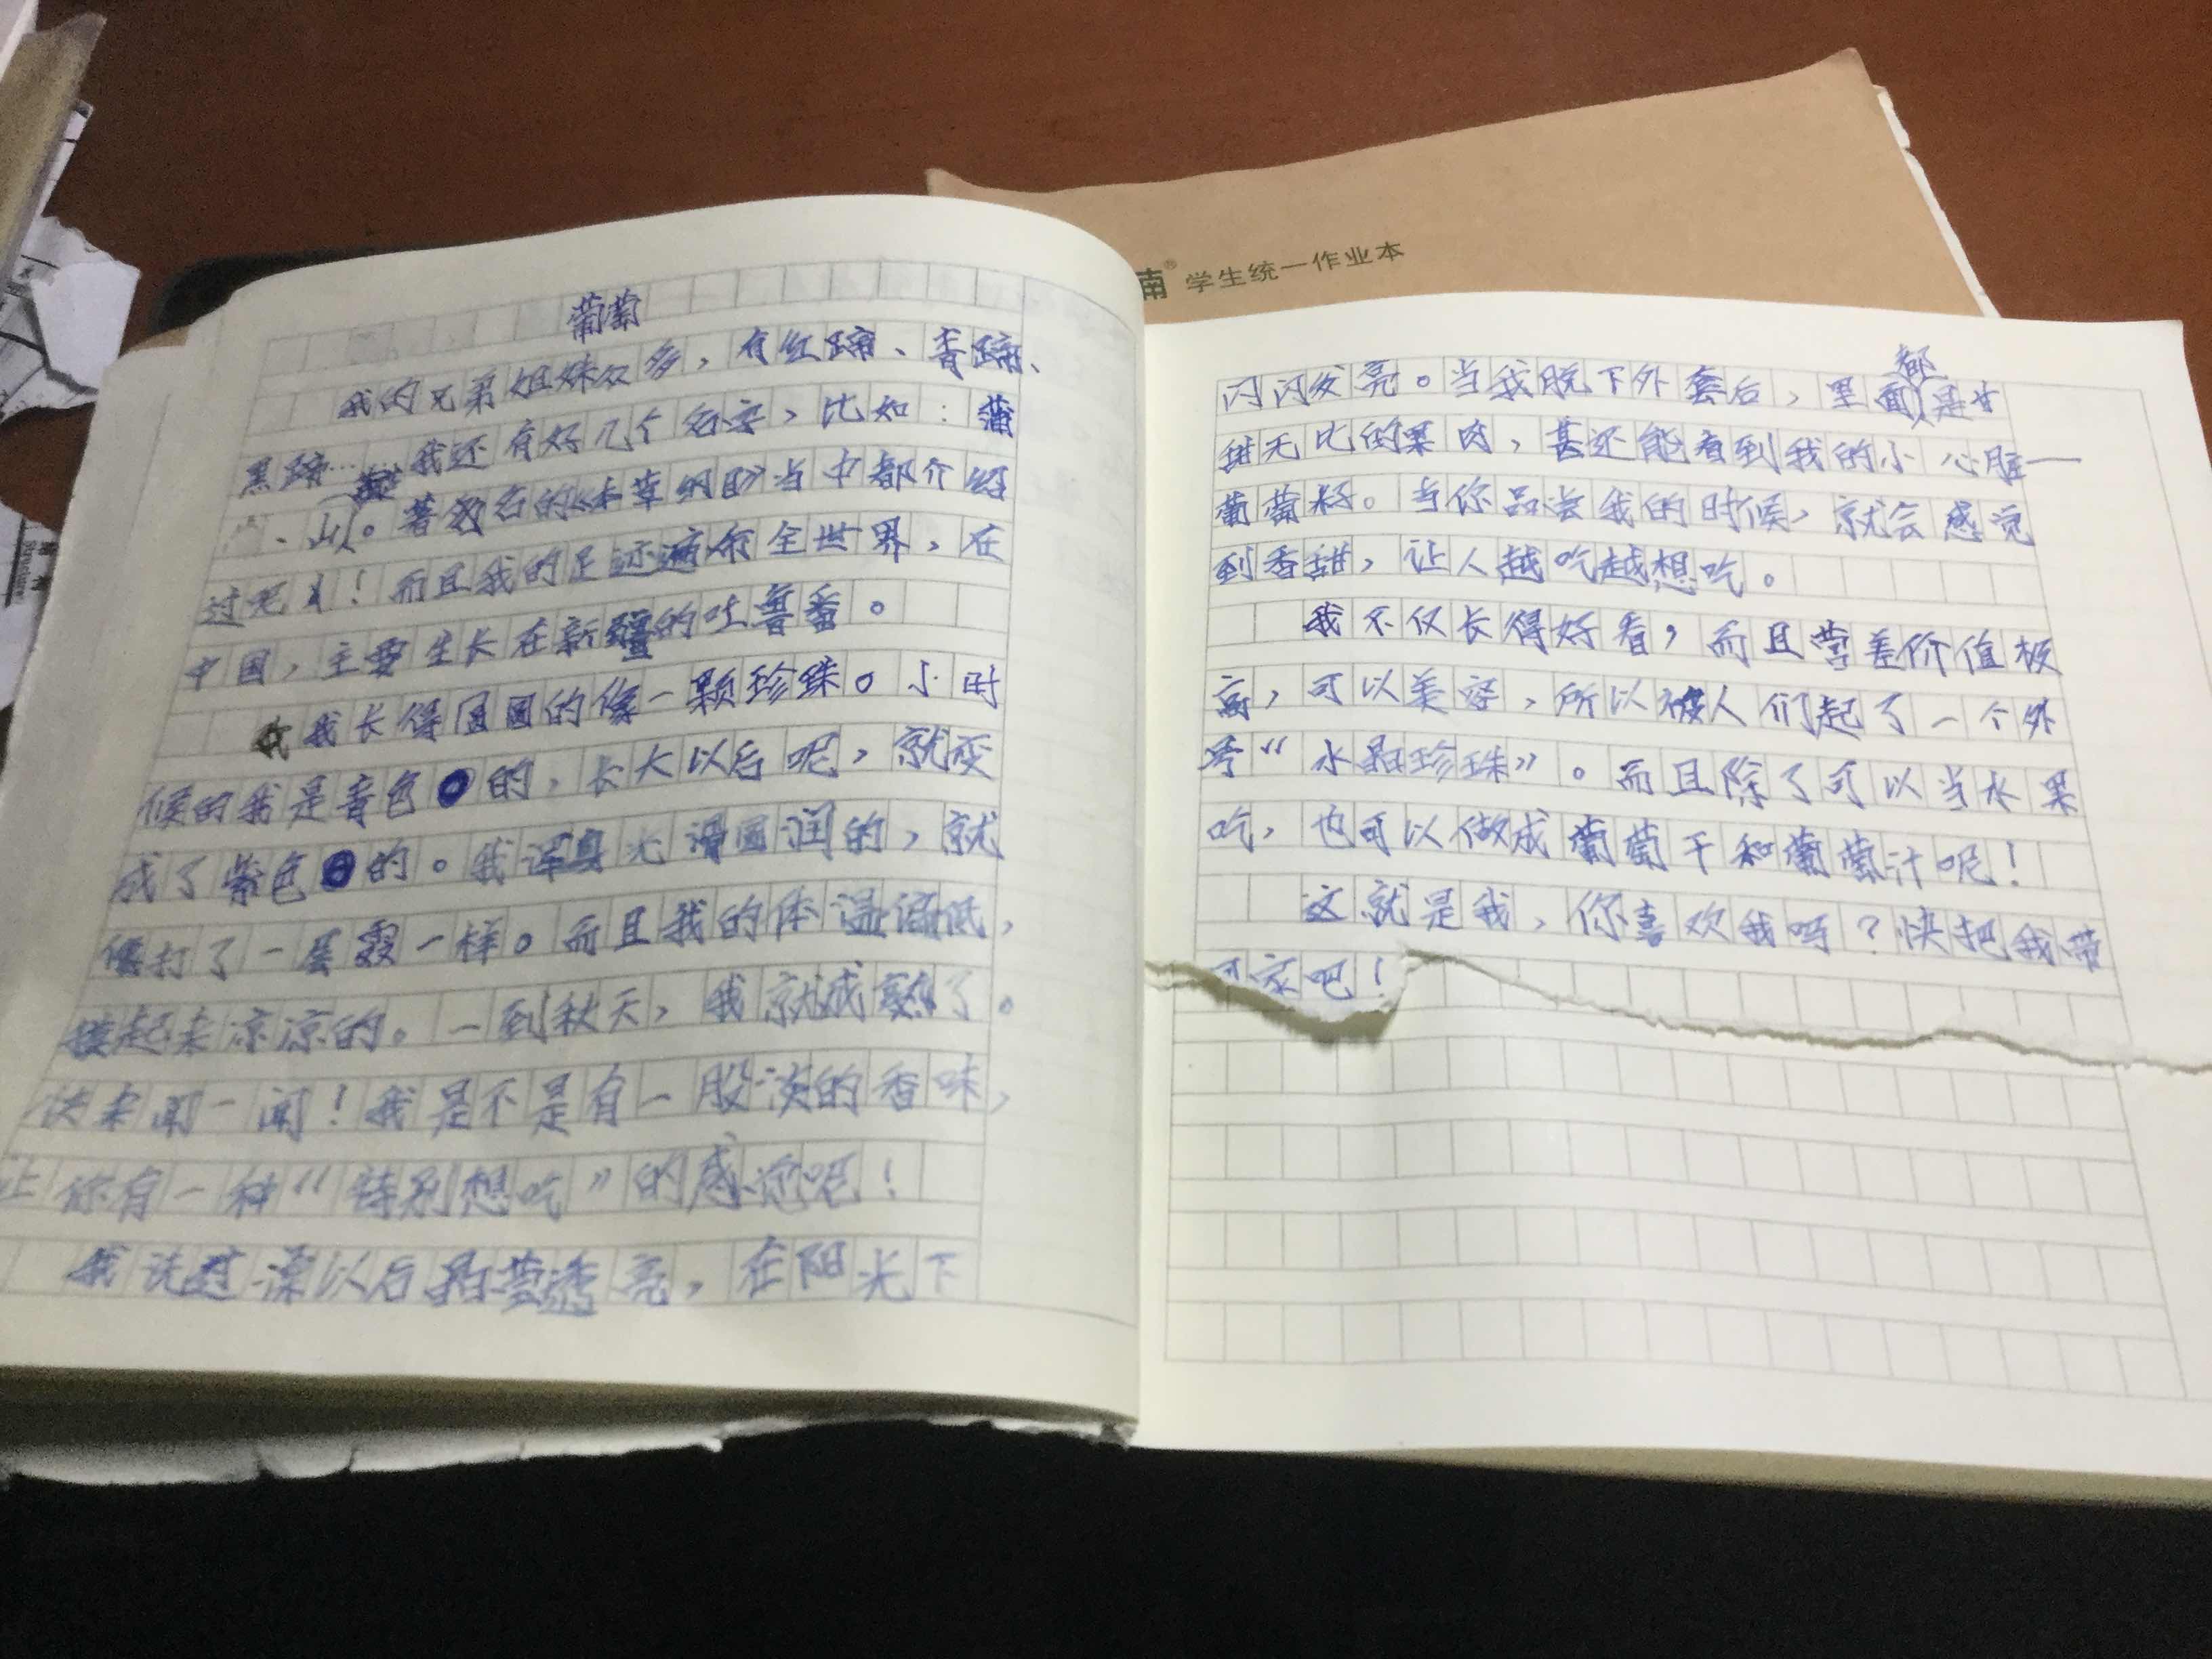 葡萄
我的兄弟姐妹众多，有红蹄、香蹄、
黑蹄……我还有好几个名字，比如：蒲
、山。著名的《本草纲目》当中都介绍
过呢！而且我的足迹遍布全世界，在
中国，主要生长在新疆的吐鲁番。
我长得圆圆的像一颗珍珠。小时
候的我是青色的，长大以后呢，就变
成了紫色的。我浑身光滑圆润的，就
像打了一层霜一样。而且我的体温低，
摸起来凉凉的。一到秋天，我就成熟了。
快来闻一闻！我是不是有一股淡的香味，
让你有一种“特别想吃”的感觉呢！
我洗过澡以后晶莹透亮，在阳光下
南® 学生统一作业本
闪闪发亮。当我脱下外套后，里面都是甘
甜无比的果肉，甚还能看到我的小心脏一
葡萄籽。当你品尝我的时候，就会感觉
到香甜，让人越吃越想吃。
我不仅长得好看，而且营差价值极
高，可以美容，所以被人们起了一个外
号“水晶珍珠”。而且除了可以当水果
吃，也可以做成葡萄干和葡萄汁呢！
这就是我，你喜欢我吗？快把我带
回家吧！